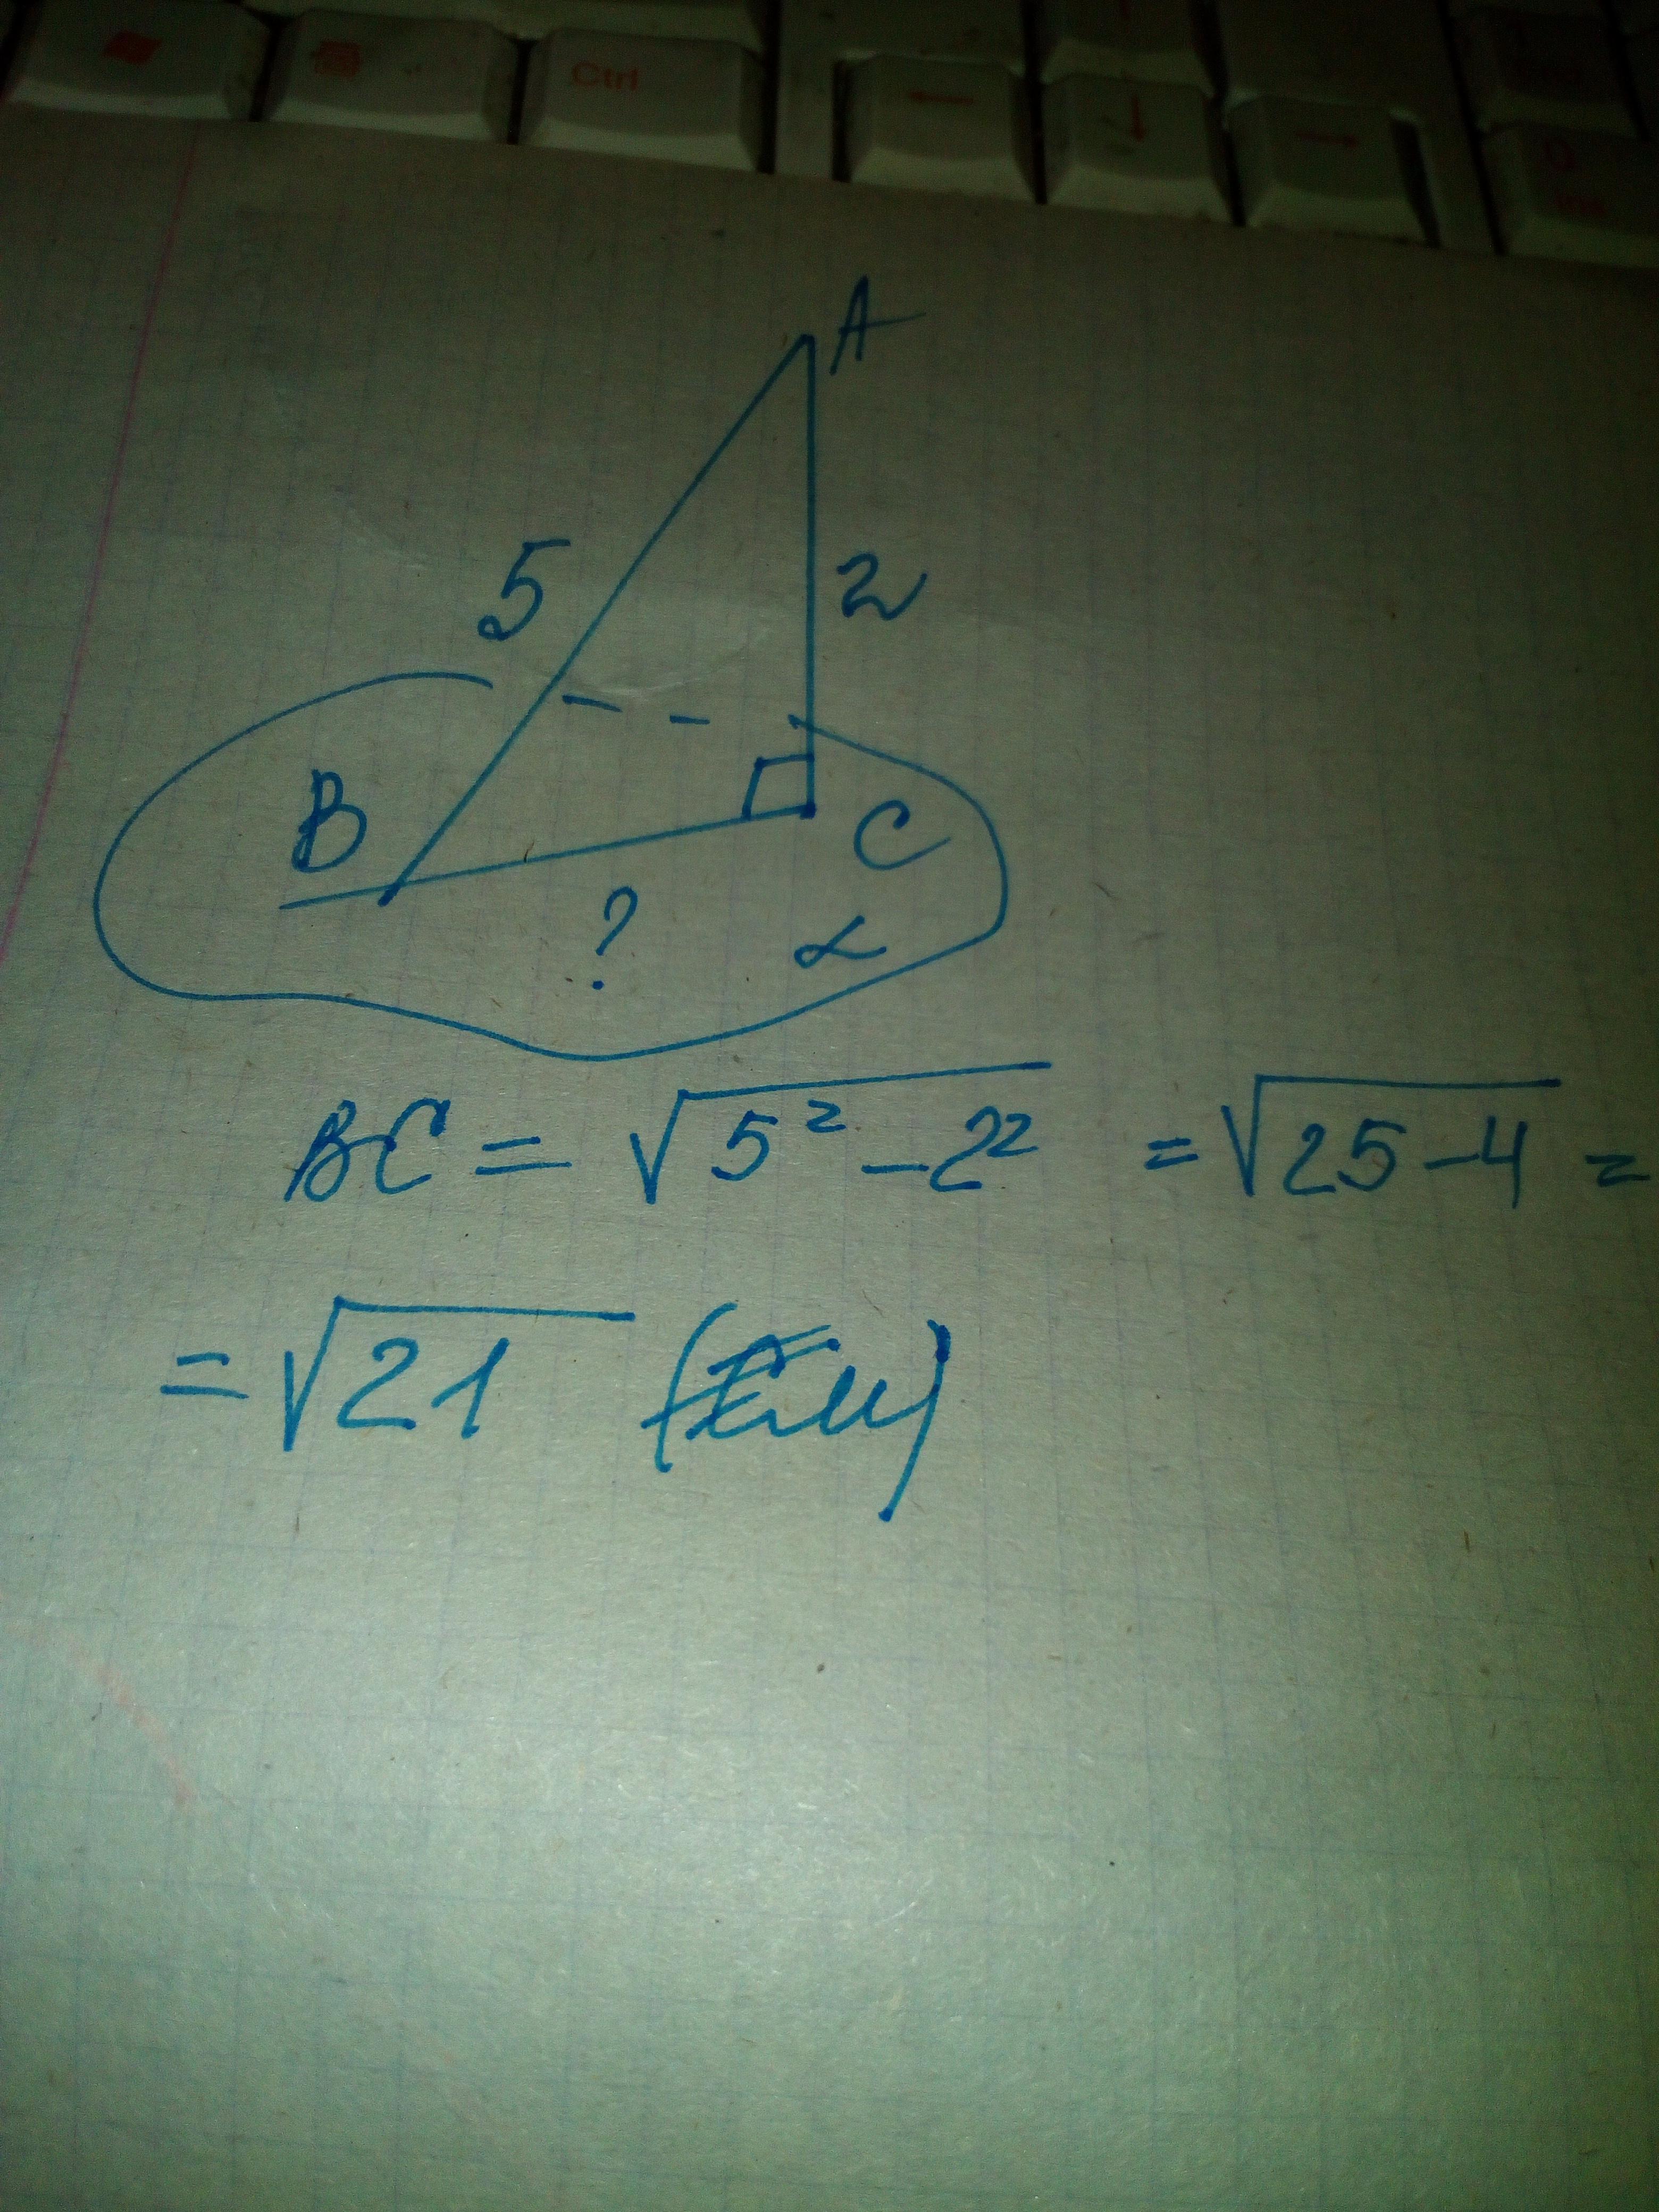 Ctrl
← ↓ →
0
Ins
A
5
2
B
C
?
α
BC = √5² - 2² = √25-4 =
= √21 (см)